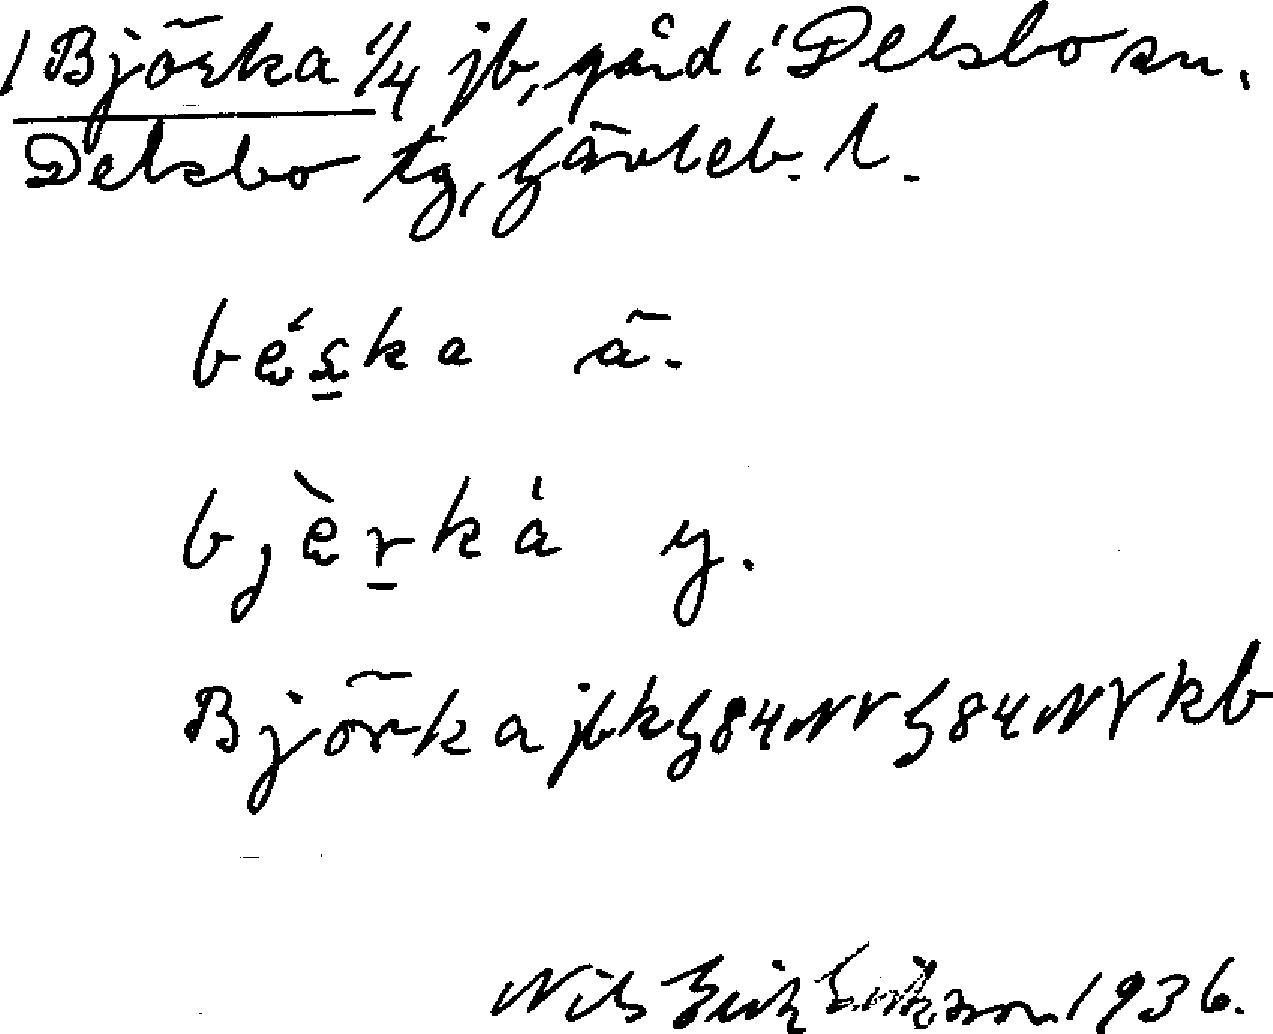 1 Björka 1/4 jb, gård i Delsbo sn.
Delsbo tg, Gävleb. l.
béska ä.
bjèrká y.
Björka jbk G84NV G84NV kb
Nils Erik Eriksson 1936.